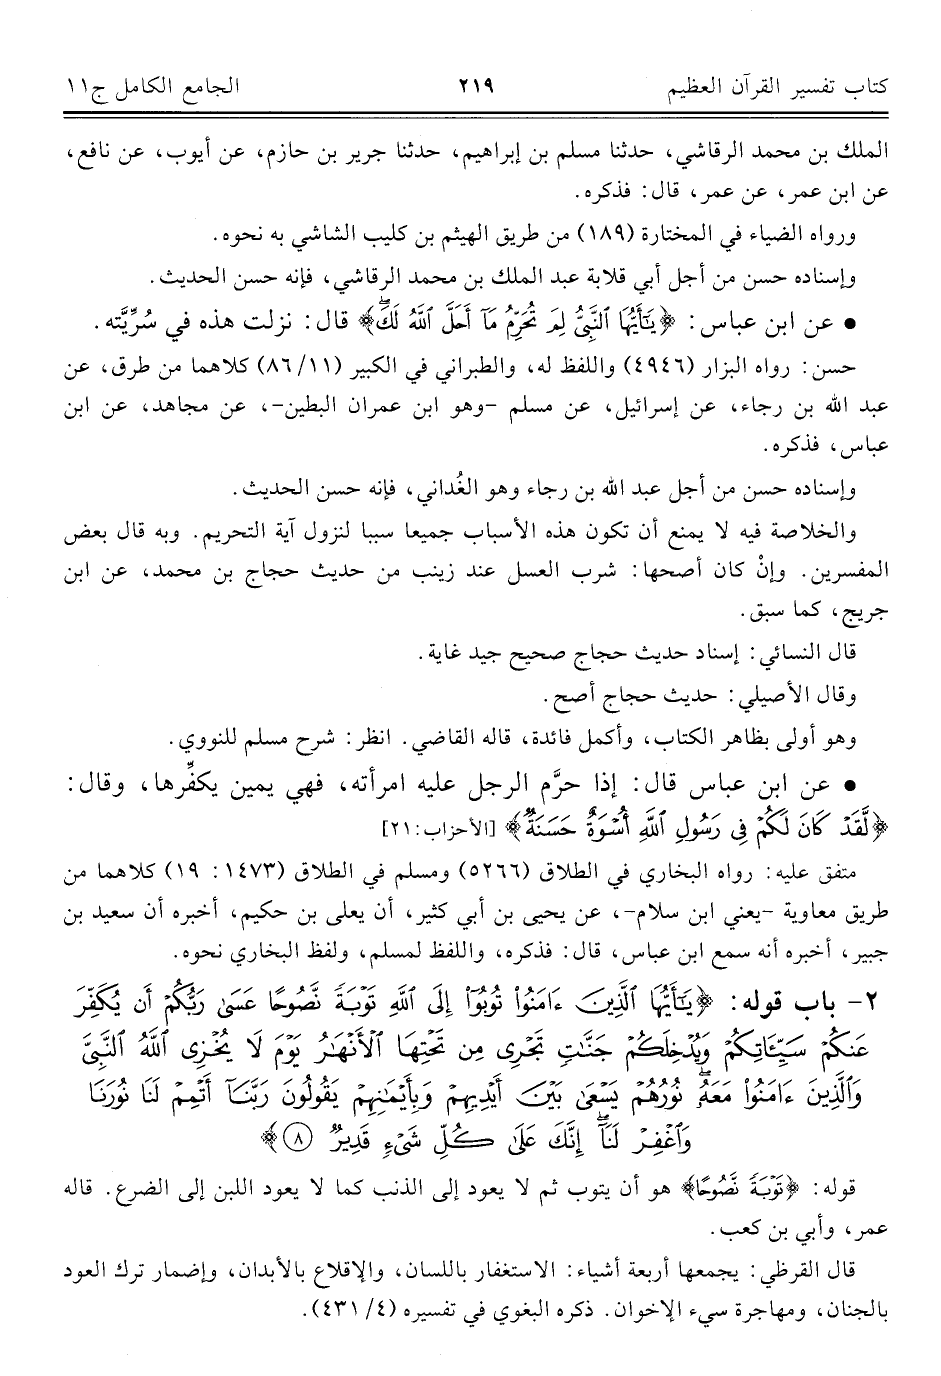 كتاب تفسير القرآن العظيم ٢١٩ الجامع الكامل ج١١
الملك بن محمد الرقاشي، حدثنا مسلم بن إبراهيم، حدثنا جرير بن حازم، عن أيوب، عن نافع،
عن ابن عمر، عن عمر، قال: فذكره.
ورواه الضياء في المختارة (١٨٩) من طريق الهيثم بن كليب الشاشي به نحوه.
وإسناده حسن من أجل أبي قلابة عبد الملك بن محمد الرقاشي، فإنه حسن الحديث.
• عن ابن عباس: ﴿يَٰٓأَيُّهَا ٱلنَّبِيُّ لِمَ تُحَرِّمُ مَآ أَحَلَّ ٱللَّهُ لَكَۖ﴾ قال: نزلت هذه في سُرِّيَّته.
حسن: رواه البزار (٤٩٤٦) واللفظ له، والطبراني في الكبير (٨٦/١١) كلاهما من طرق، عن
عبد الله بن رجاء، عن إسرائيل، عن مسلم -وهو ابن عمران البطين-، عن مجاهد، عن ابن
عباس، فذكره.
وإسناده حسن من أجل عبد الله بن رجاء وهو الغُداني، فإنه حسن الحديث.
والخلاصة فيه لا يمنع أن تكون هذه الأسباب جميعا سببا لنزول آية التحريم. وبه قال بعض
المفسرين. وإنْ كان أصحها: شرب العسل عند زينب من حديث حجاج بن محمد، عن ابن
جريج، كما سبق.
قال النسائي: إسناد حديث حجاج صحيح جيد غاية.
وقال الأصيلي: حديث حجاج أصح.
وهو أولى بظاهر الكتاب، وأكمل فائدة، قاله القاضي. انظر: شرح مسلم للنووي.
• عن ابن عباس قال: إذا حرَّم الرجل عليه امرأته، فهي يمين يكفِّرها، وقال:
﴿لَّقَدْ كَانَ لَكُمْ فِى رَسُولِ ٱللَّهِ أُسْوَةٌ حَسَنَةٌ﴾ [الأحزاب: ٢١]
متفق عليه: رواه البخاري في الطلاق (٥٢٦٦) ومسلم في الطلاق (١٤٧٣: ١٩) كلاهما من
طريق معاوية -يعني ابن سلام-، عن يحيى بن أبي كثير، أن يعلى بن حكيم، أخبره أن سعيد بن
جبير، أخبره أنه سمع ابن عباس، قال: فذكره، واللفظ لمسلم، ولفظ البخاري نحوه.
٢- باب قوله: ﴿يَٰٓأَيُّهَا ٱلَّذِينَ ءَامَنُوا۟ تُوبُوٓا۟ إِلَى ٱللَّهِ تَوْبَةً نَّصُوحًا عَسَىٰ رَبُّكُمْ أَن يُكَفِّرَ
عَنكُمْ سَيِّـَٔاتِكُمْ وَيُدْخِلَكُمْ جَنَّٰتٍ تَجْرِى مِن تَحْتِهَا ٱلْأَنْهَٰرُ يَوْمَ لَا يُخْزِى ٱللَّهُ ٱلنَّبِىَّ
وَٱلَّذِينَ ءَامَنُوا۟ مَعَهُۥۖ نُورُهُمْ يَسْعَىٰ بَيْنَ أَيْدِيهِمْ وَبِأَيْمَٰنِهِمْ يَقُولُونَ رَبَّنَآ أَتْمِمْ لَنَا نُورَنَا
وَٱغْفِرْ لَنَآۖ إِنَّكَ عَلَىٰ كُلِّ شَىْءٍ قَدِيرٌ ٨﴾
قوله: ﴿تَوْبَةً نَّصُوحًا﴾ هو أن يتوب ثم لا يعود إلى الذنب كما لا يعود اللبن إلى الضرع. قاله
عمر، وأبي بن كعب.
قال القرظي: يجمعها أربعة أشياء: الاستغفار باللسان، والإقلاع بالأبدان، وإضمار ترك العود
بالجنان، ومهاجرة سيء الإخوان. ذكره البغوي في تفسيره (٤/ ٤٣١).